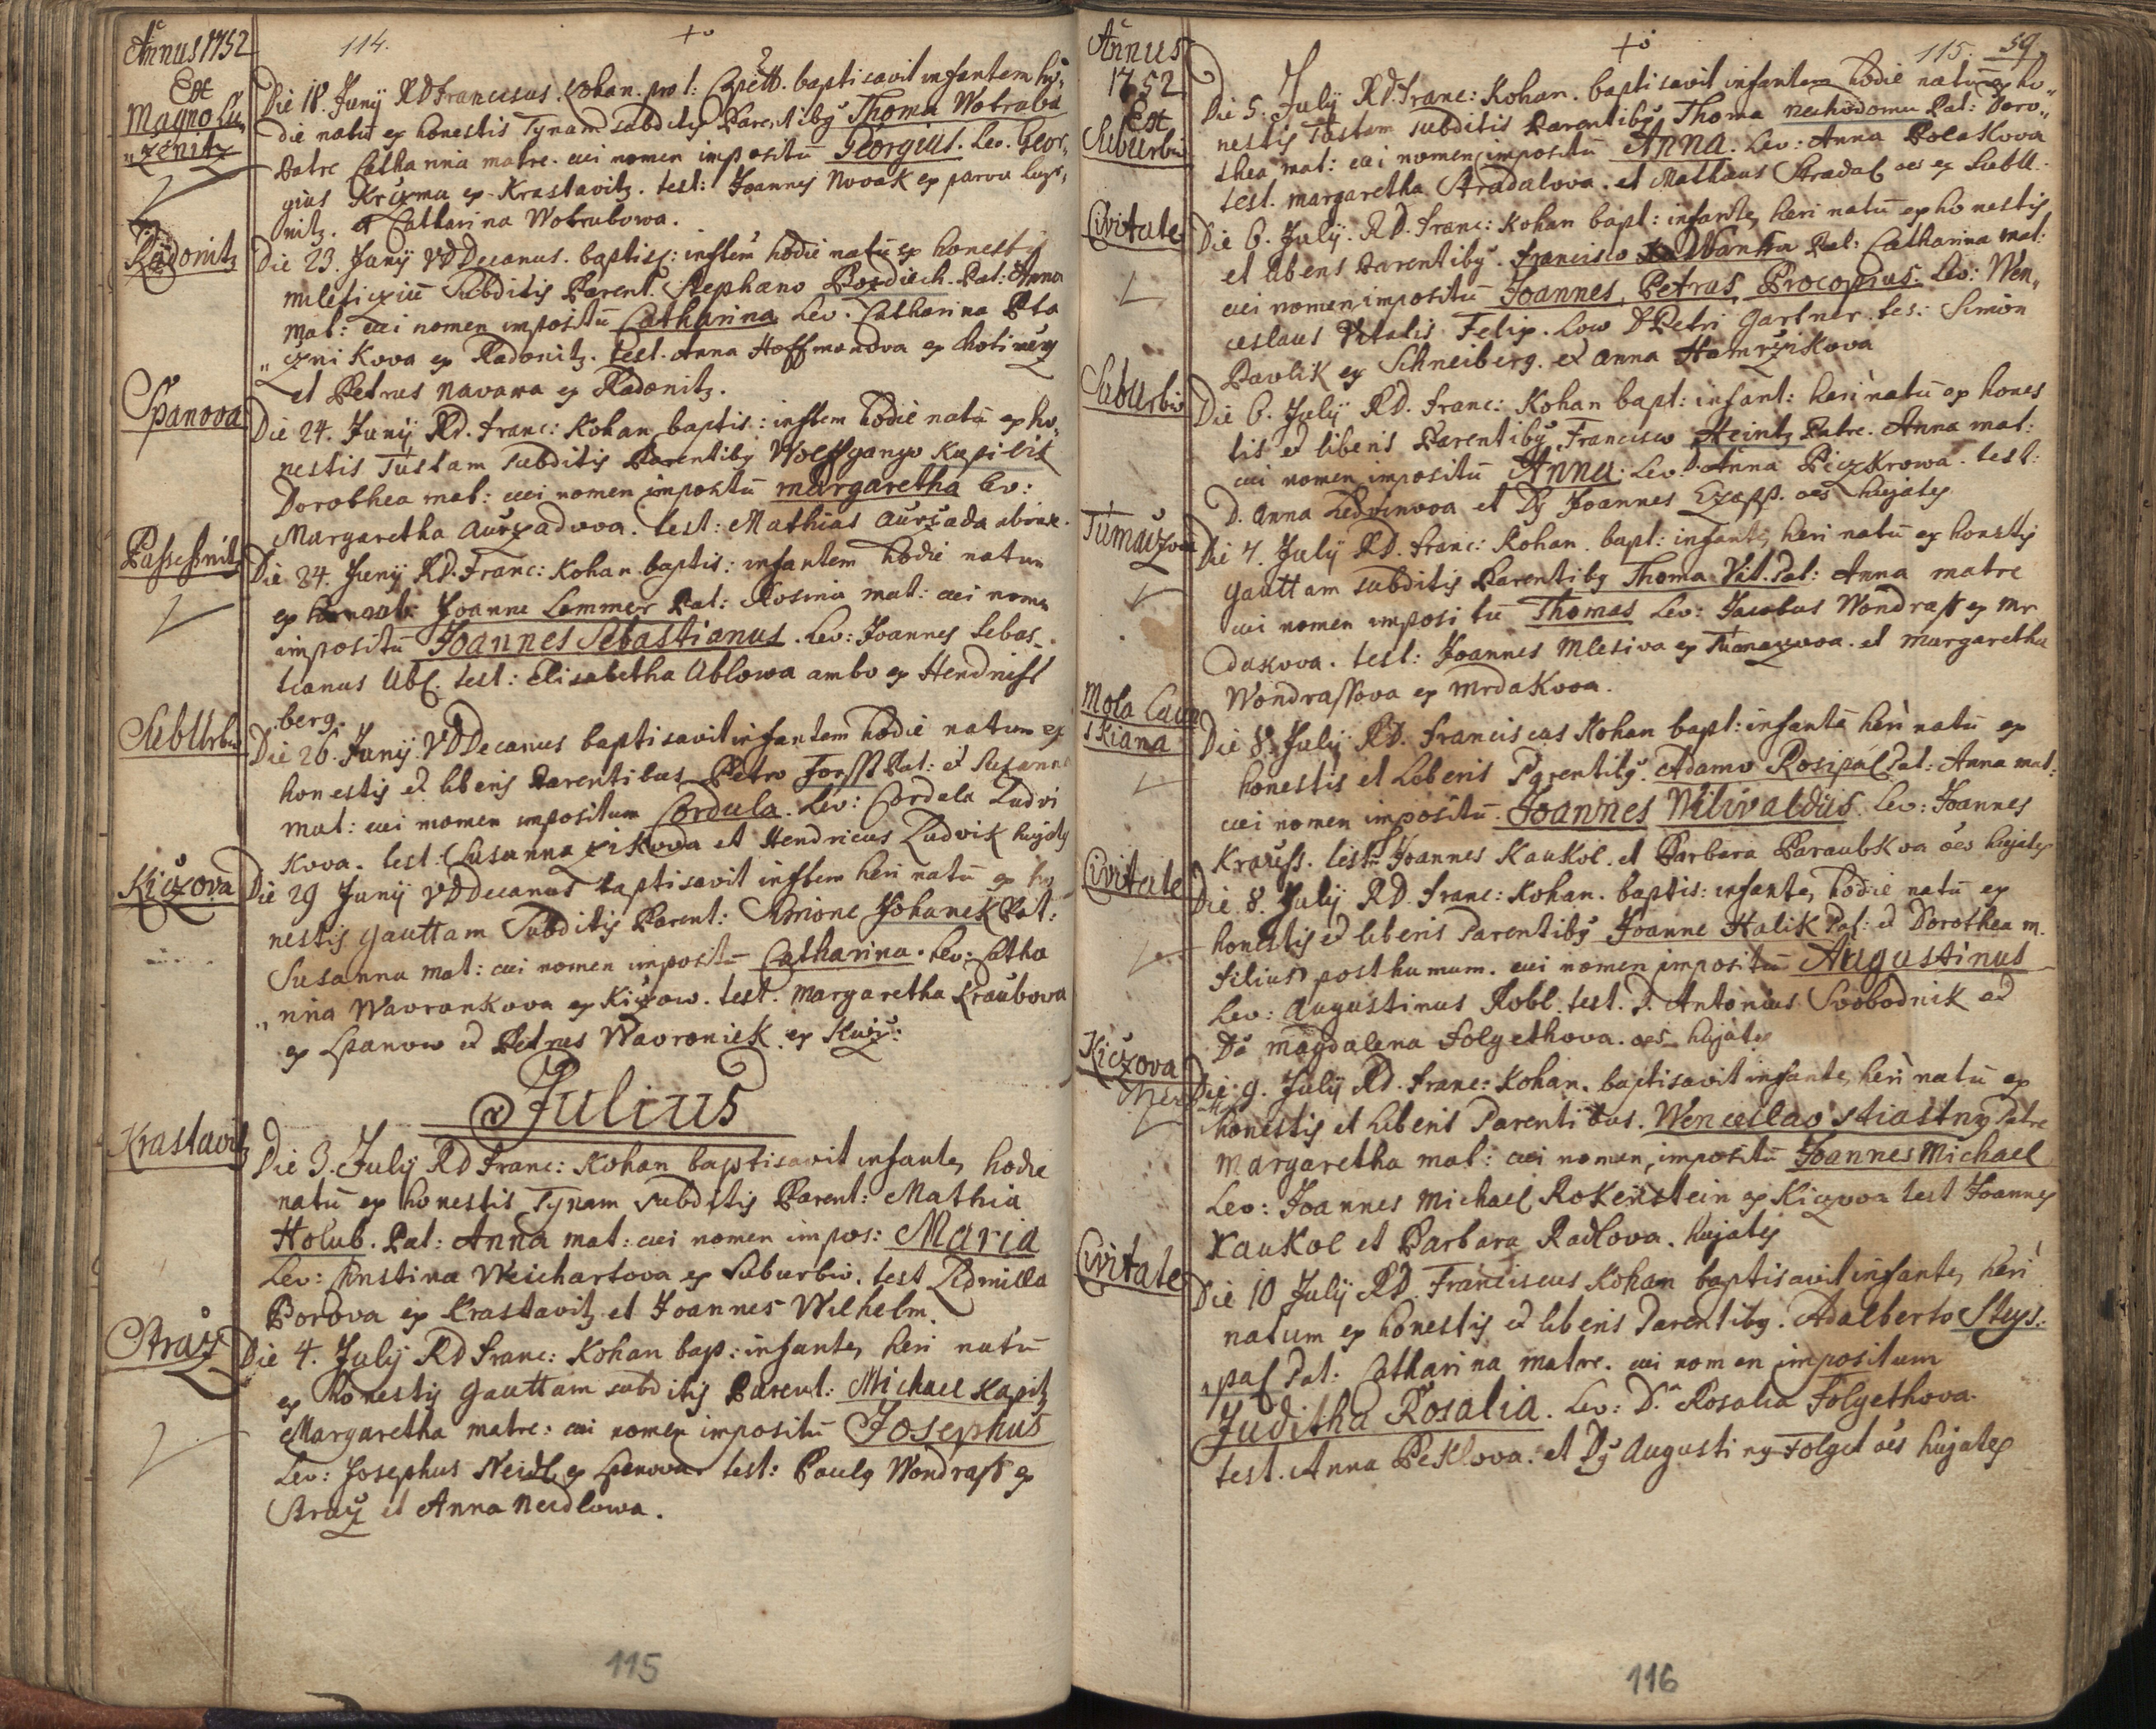 Annus 1752
114.
Ex
Magno Lu„
„zenitz
Die 18. Junÿ RD Franciscus Kohan. pro t: Capell. baptisavit infantem ho„
die natū ex honestis Tynam subditis Parentibȝ Thoma Wotruba
Patre Cathanna matre. cui nomen impositū Georgius. Lev. Geor„
gius Kruzma ex Krastavitz. test: Joannes Novak ex parva Luz„
nitz. et Catharina Wotrubowa.
Radonitz
Die 23. Junÿ VD Decanus. baptis: inftem hodie natū ex honestis
mileficziū Subditis Parent. Stephano Pozdiech. Pat: Anna
Mat: cui nomen impositū Catharina Lev. Catharina Pta
„czni Kova ex Radonitz. test. Anna Hoffmanova ex Chotinery
et Petrus Navara ex Radonitz.
Spanova
Die 24. Junÿ RD. Franc: Kohan baptis: inftem hodie natū ex ho„
nestis Tustam subditis Parentibȝ Wolfgango Kupilik
Dorothea mat: cui nomen impositū Margaretha Lev:
Margaretha Aurzadwoa. test: Mathias Aurzada
Passesnitz
Die 24. Junÿ RD. Franc: Kohan baptis: infantem hodie natum
ex Joanne Lommer Pat: Rosina mat: cui nomen
impositū Joannes Sebastianus. Lev: Joannes Sebas„
tianus Ubl. test: Elisabetha Ublowa ambo ex Hendrichs
berg.
Suburbio
Die 26. Junÿ VD Decanus baptisavit infantem hodie natum ex
honestis et liberis Parentibus Petro Forsst Pat: et Susanna
Mat: cui nomen impositum Cordula. Lev: Cordula Ludvi
Kova. test: Susanna et Hendricus Ludvik hujates
Kiczova
Die 29 Junÿ VD Decanus baptisavit inftem heri natū ex ho„
nestis Gauttam Subditis Parent: Simone Johanek Pat:
Susanna mat: cui nomen impositū Catharina. Lev: Catha
„rina Wavrankova ex Kiczow. test. Margaretha Kraubova
ex Spanow et Petrus Wavroniek ex Kicz:
Julius
Krastavitz
Die 3. Julÿ RD Franc: Kohan baptisavit infante, hodie
natū ex honestis Tynam subditis Parent: Mathia
Holub. Pat: Anna mat: cui nomen impos: Maria
Lev: Christina Weichartova ex Suburbio. test Lidmilla
Borova ex Krastavitz et Joannes Wilhelm.
Straž
Die 4. Julÿ RD Franc: Kohan bap: infante, heri natū
ex honestis Gauttam subditis Parent: Michael Kapitz
Margaretha matre: cui nomen impositū Josephus
Lev: Josephus Neidl ex Spanova test: Paulȝ Wondrass ex
Straž et Anna Neidlowa.
115
Annus
1752
Ex
Suburbio
115. 59
Die 5. Julÿ RD. Franc: Kohan. baptisavit infantem hodie natū ex ho„
nestis Tustam subditis Parentibȝ Thoma Nechodomu Pat: Doro„
thea mat: cui nomen impositū Anna. Lev: Anna Polakova
test. Margaretha Stradalova. et Mathaus Stradal oes ex Subu.
Civitate
Die 6. Julÿ. RD. Franc: Kohan bapt: infante, heri natū ex honestis
et liberis Parentibȝ. Francisco Wanka Pat: Catharina mat:
cui nomen impositū Joannes, Petrus, Procopius: Lev: Wen„
ceslaus Vitalis Felix. Loco D Petri Gartner. tes: Simon
Pavlik ex Schneiberg. et Anna Hamrzikova
Suburbio
Die 6. Julÿ RD. Franc: Kohan bapt: infant: heri natū ex hones
tis et liberis Parentibȝ Francisco Heintz Patre. Anna mat:
cui nomen impositū Anna. Lev D. Anna Piczkrowa. test:
D. Anna Ledvinwoa et Dȝ Joannes Czapp. oes hujates
Tumaczova
Die 7. Julÿ RD. Franc: Kohan. bapt: infante, heri natū ex honstis
Gauttam subditis Parentibȝ Thoma Vit. Pat: Anna matre
cui nomen impositū Thomas Lev: Jacobus Wondrass ex Mr
dakova. test: Joannes Mlesiva ex Tumaczwoa. et Margaretha
Wondrassova ex Mrdakwoa.
Mola Cau
skiana
Die 8. Julÿ RD. Franciscus Kohan bapt: infantē heri natū ex
honestis et Liberis Parentibȝ. Adamo Rosipal Pat: Anna mat:
cui nomen impositū. Joannes Wilivaldus. Lev: Joannes
Krauss. test: Joannes Kaukol. et Barbara Paraubkva oes hujates
Civitate
Die 8. Julÿ RD. Franc: Kohan. baptis: infante, hodie natū ex
honestis et liberis Parentibȝ Joanne Halik Pat: et Dorothea m.
filius posthumum. cui nomen impositū Augustinus
Lev: Augustinus Robl. test. D. Antonius Svobodnik et
Da Magdalena Folgethova. oes hujates
Kiczova
Die 9. Julÿ RD. Franc: Kohan. baptisavit infante, heri natū ex
honestis et Liberis Parentibus. Wenceslao Stiastny Patre
Margaretha mat: cui nomen, impositū Joannes Michael
Lev: Joannes Michael Rokenstein ex Kiczwoa test Joannes
Kaukol et Barbara Radlova. hujates
Civitate
Die 10 Julÿ RD. Franciscus Kohan baptisavit infante, heri
natum ex honestis et liberis Parentibȝ. Adalberto Steys:
„pal Pat: Catharina matre. cui nomen impositum
Juditha Rosalia. Lev: Da Rosalia Folgethova.
test. Anna Peklova. et Dȝ Augustinȝ Folget oes hujates
116